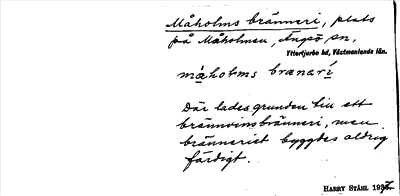 Måholms bränneri, plats
på Måholmen, Ängsö sn,
Yttertjurbo hd, Västmanlands län.
måholms brænarí
Där lades grunden till ett
brännvinsbränneri, men
bränneriet byggdes aldrig
färdigt.
HARRY STÅHL 1937.